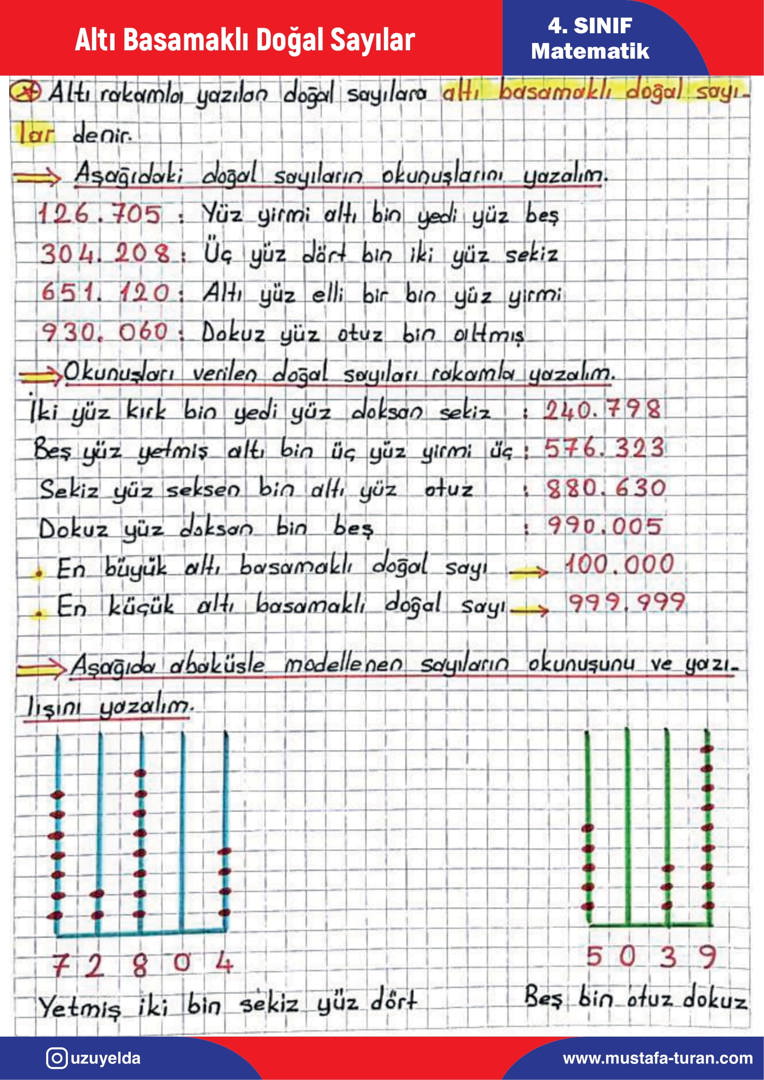 Altı Basamaklı Doğal Sayılar
4. SINIF
Matematik
Altı rakamla yazılan doğal sayılara altı basamaklı doğal sayı-
lar denir.
Aşağıdaki doğal sayıların okunuşlarını yazalım.
126.705 : Yüz yirmi altı bin yedi yüz beş
304.208 : Üç yüz dört bin iki yüz sekiz
651.120 : Altı yüz elli bir bin yüz yirmi
930.060 : Dokuz yüz otuz bin altmış
Okunuşları verilen doğal sayıları rakamla yazalım.
İki yüz kırk bin yedi yüz doksan sekiz : 240.798
Beş yüz yetmiş altı bin üç yüz yirmi üç : 576.323
Sekiz yüz seksen bin altı yüz otuz : 880.630
Dokuz yüz doksan bin beş : 990.005
. En büyük altı basamaklı doğal sayı → 100.000
. En küçük altı basamaklı doğal sayı → 999.999
Aşağıda abaküsle modellenen sayıların okunuşunu ve yazı-
lışını yazalım.
7 2 8 0 4
5 0 3 9
Yetmiş iki bin sekiz yüz dört
Beş bin otuz dokuz
uzuyelda
www.mustafa-turan.com